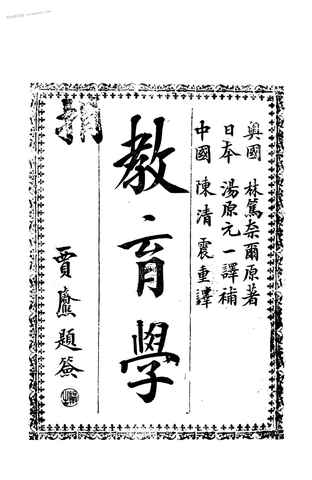 奧國 林篤奈爾原著
日本 湯原元一譯補
中國 陳清震重譯
教育學
題簽
捐